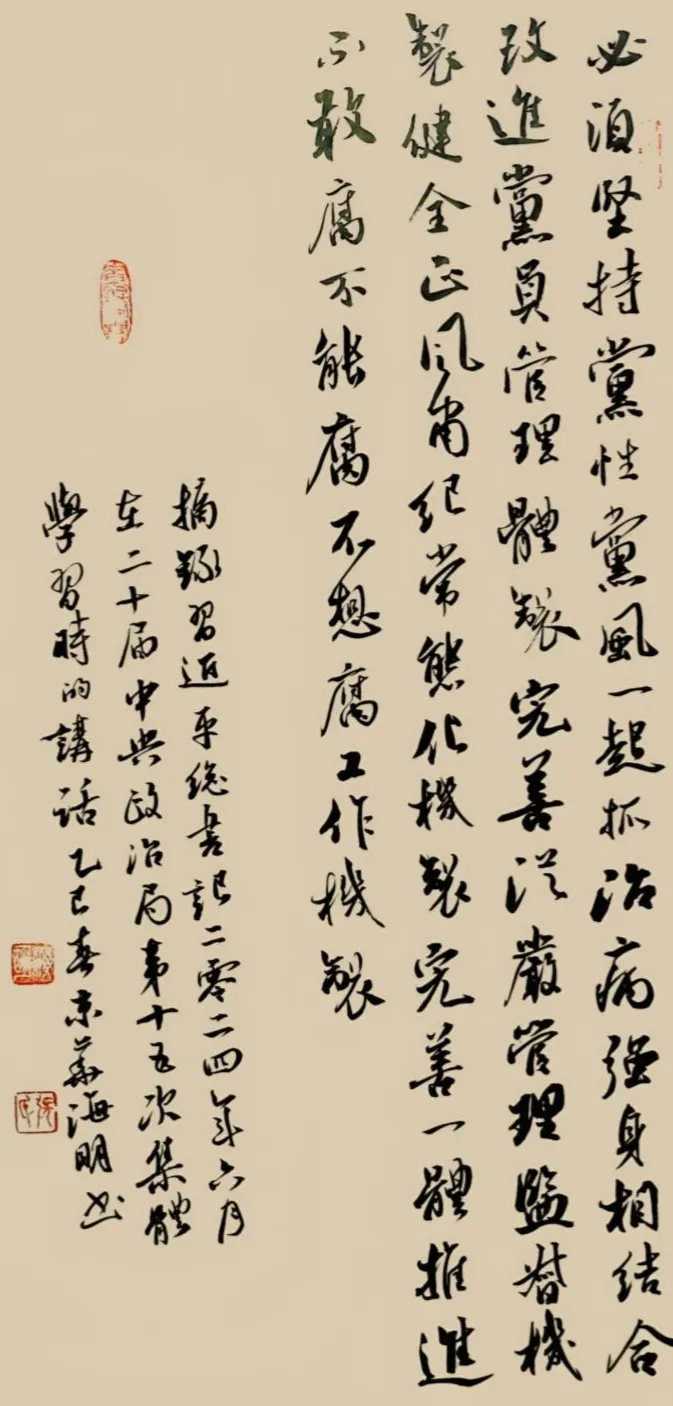 必須堅持黨性黨風一起抓治病强身相結合
改進黨員管理體製完善從嚴管理監督機
製健全正風肅紀常態化機製完善一體推進
不敢腐不能腐不想腐工作機製
摘録習近平總書記二零二四年六月
在二十届中央政治局第十五次集體
學習時的講話乙巳春京華海明书